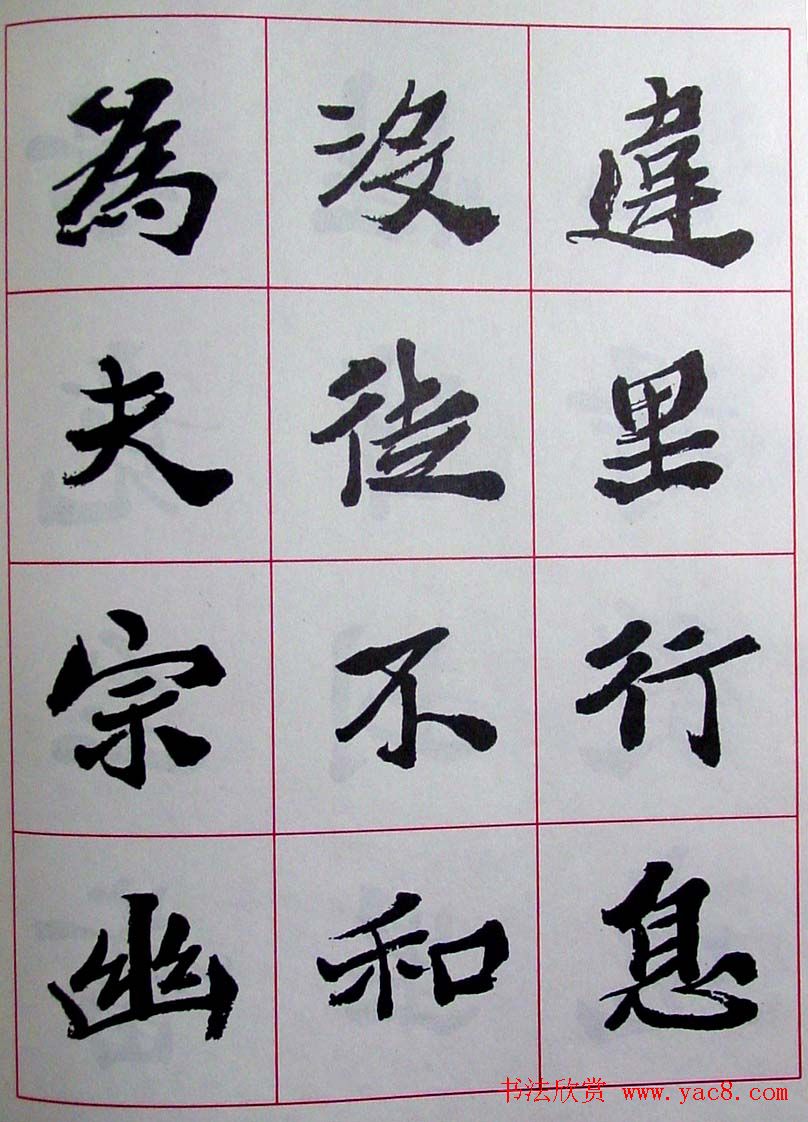 違里行息
没不和
為夫宗幽
书法欣赏 www.yac8.com